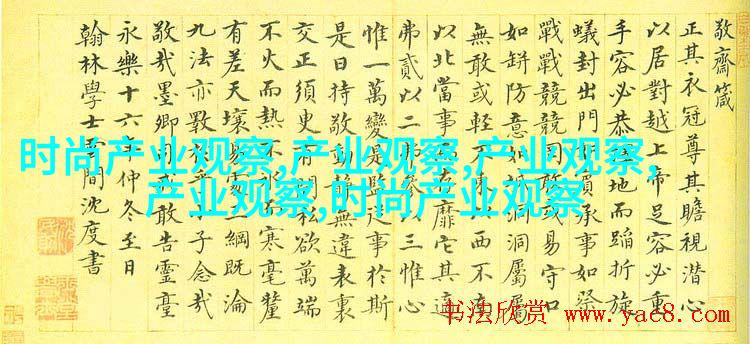 敬齋箴
正其衣冠尊其瞻視潛心
以居對越上帝足容必重
手容必恭地而蹈折旋
蟻封出門賓承事如祭
戰戰兢兢罔敢或易守口
如缾防意如洞洞屬屬
無敢或輕不東西不南
以北當事靡它其適
弗貳以二參以三惟心
惟一萬變是監事於斯
是曰持敬動靜無違表裏
交正須臾有間私欲萬端
不火而熱不而寒毫釐
有差天壤易處綱既淪
九法亦斁子念哉
敬哉墨卿戒敢告靈臺
永樂十六年仲冬至日
翰林學士間沈度書
时尚产业观察,产业观察,产业观察,
产业观察,时尚产业观察
书法欣赏
www.yac8.com